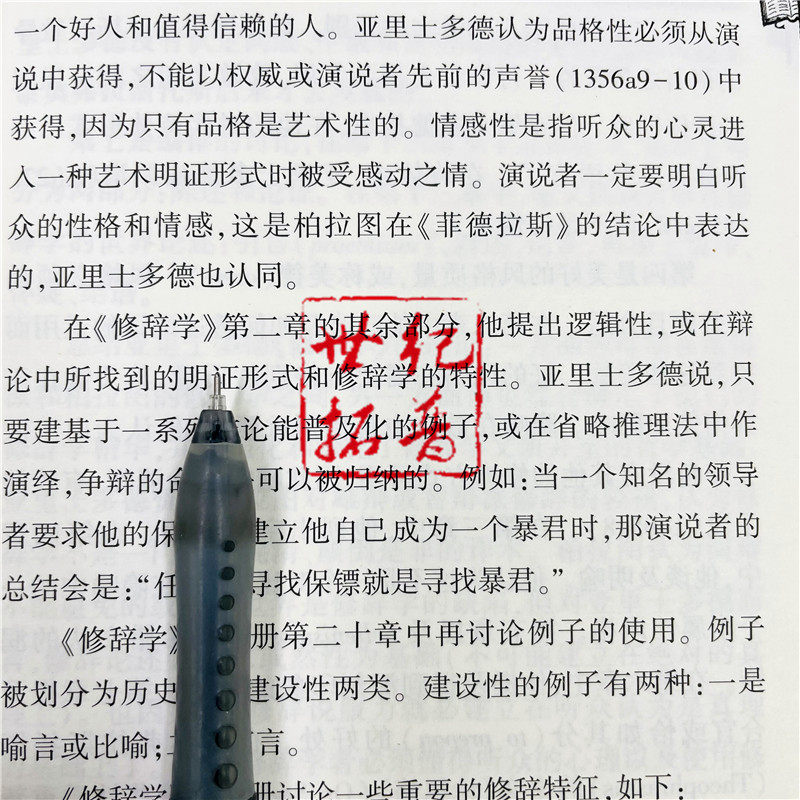 一个好人和值得信赖的人。亚里士多德认为品格性必须从演
说中获得，不能以权威或演说者先前的声誉(1356a9-10)中
获得，因为只有品格是艺术性的。情感性是指听众的心灵进
入一种艺术明证形式时被受感动之情。演说者一定要明白听
众的性格和情感，这是柏拉图在《菲德拉斯》的结论中表达
的，亚里士多德也认同。
在《修辞学》第二章的其余部分，他提出逻辑性，或在辩
论中所找到的明证形式和修辞学的特性。亚里士多德说，只
要建基于一系列 论能普及化的例子，或在省略推理法中作
演绎，争辩的 可以被归纳的。例如：当一个知名的领导
者要求他的保 建立他自己成为一个暴君时，那演说者的
总结会是：“任 寻找保镖就是寻找暴君。”
《修辞学》 册第二十章中再讨论例子的使用。例子
被划分为历史 建设性两类。建设性的例子有两种：一是
喻言或比喻； 言。
《修辞学 册讨论一些重要的修辞特征，如下：
世纪
拓普